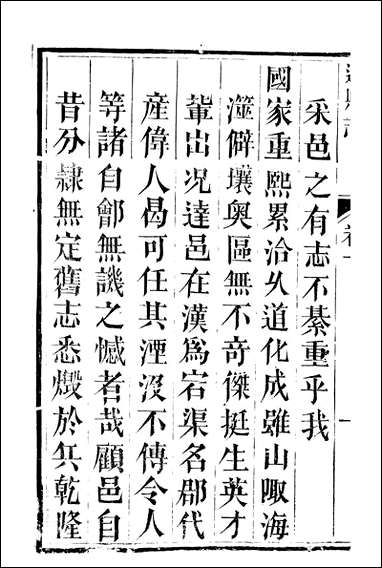 采邑之有志不綦重乎我
國家重熙累洽久道化成雖山陬海
澨僻壤奥區無不奇傑挺生英才
軰出况達邑在漢爲宕渠名郡代
產偉人曷可任其湮沒不傳令人
等諸自鄶無譏之憾者哉顧邑自
昔分隷無定舊志悉燬於兵乾隆